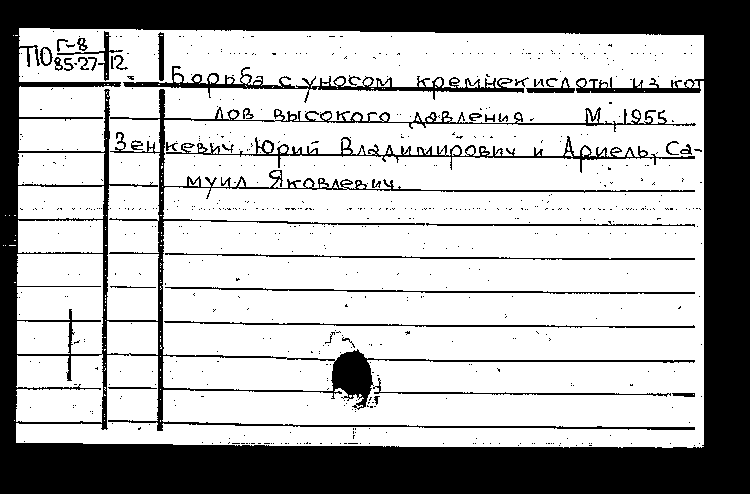 Г-8
ТЮ 85-27-12
Борьба с уносом кремнекислоты из кот
лов высокого давления. М., 1955.
Зенкевич, Юрий Владимирович и Ариель, Са-
муил Яковлевич.